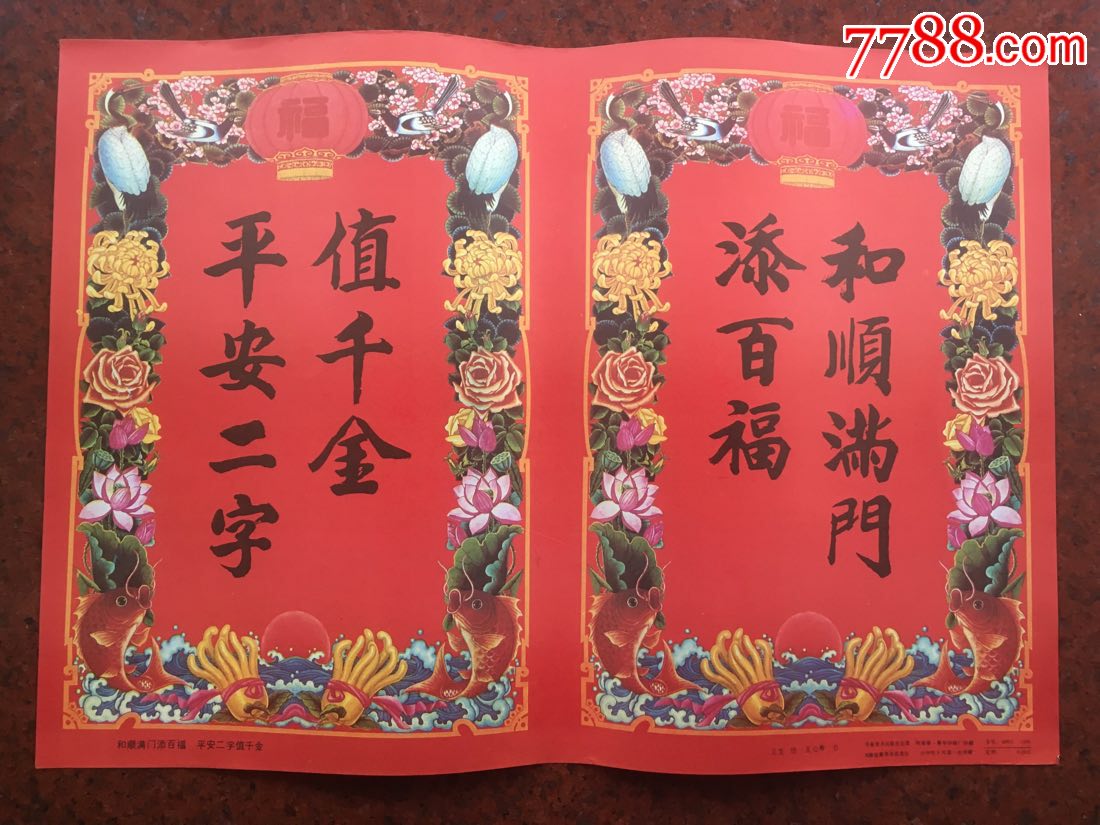 7788.com
福
福
和順滿門
添百福
平安二字
值千金
和顺满门添百福 平安二字值千金